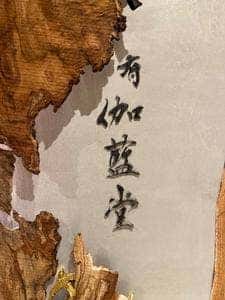 有伽藍堂